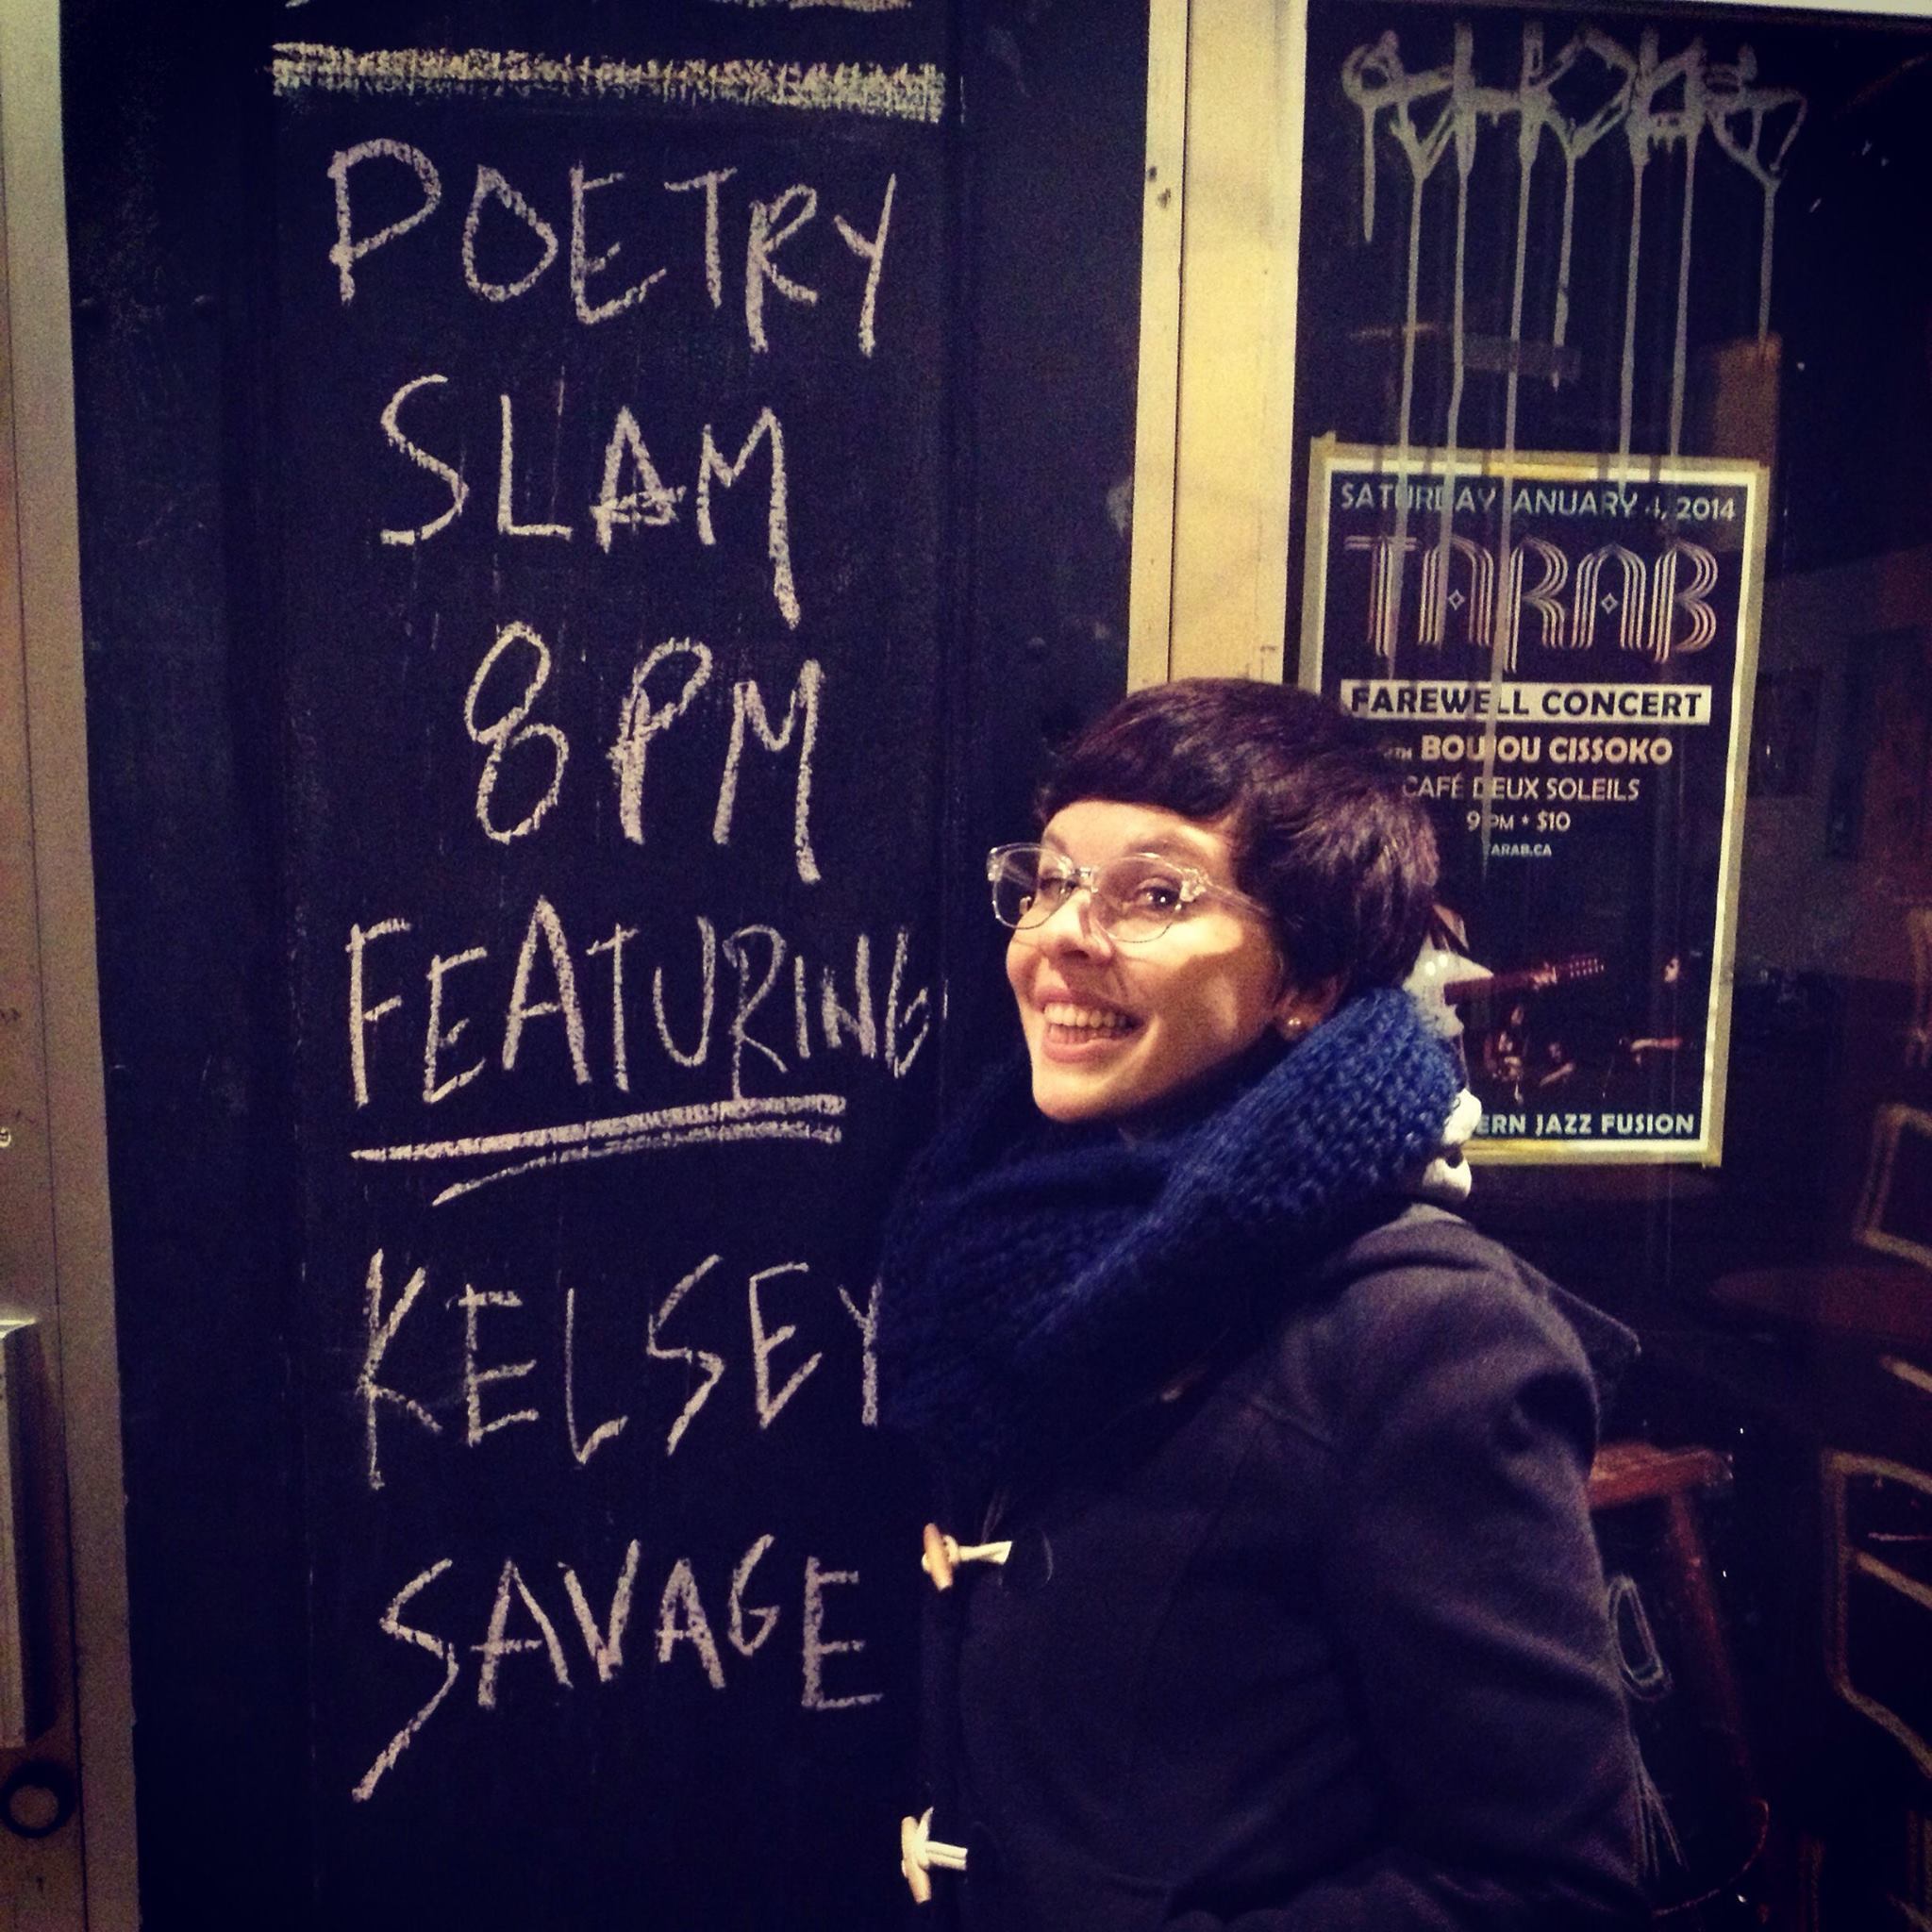 POETRY
SLAM
8PM
FEATURING
KELSEY
SAVAGE
SATURDAY JANUARY 4, 2014
TARAB
FAREWELL CONCERT
WITH BOUJOU CISSOKO
CAFÉ DEUX SOLEILS
9PM • $10
TARAB.CA
ERN JAZZ FUSION